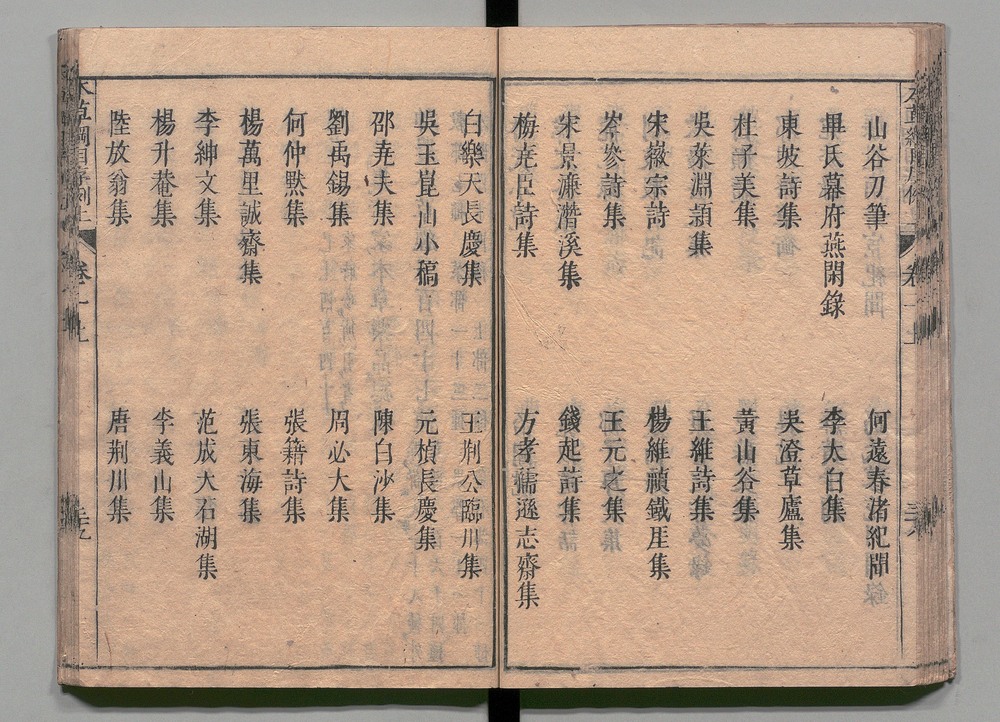 山谷刀筆
何遠春渚紀聞
畢氏幕府燕閒錄
李太白集
東坡詩集
吳澄草廬集
杜子美集
黃山谷集
吳萊淵頴集
王維詩集
宋徽宗詩
楊維禎鐵厓集
岑參詩集
王元之集
宋景濂潛溪集
錢起詩集
梅堯臣詩集
方孝孺遜志齋集
白樂天長慶集
王荆公臨川集
吳玉崑山小稿
元楨長慶集
邵堯夫集
陳白沙集
劉禹錫集
周必大集
何仲黙集
張籍詩集
楊萬里誠齋集
張東海集
李紳文集
范成大石湖集
楊升菴集
李義山集
陸放翁集
唐荆川集
本草綱目序例上
卷一上